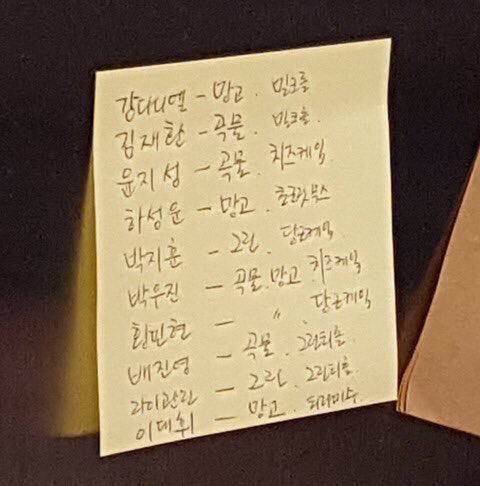 강다니엘 - 망고. 밀크롤
김재환 - 곡물. 밀크롤.
윤지성 - 곡물. 치즈케잌
하성운 - 망고. 초코무스
박지훈 - 그린. 당근케잌
박우진 - 곡물.망고. 치즈케잌
황민현 - 〃 당근케잌
배진영 - 곡물. 그린티롤
라이관린 - 그린. 그린티롤
이대휘 - 망고. 티라미수.